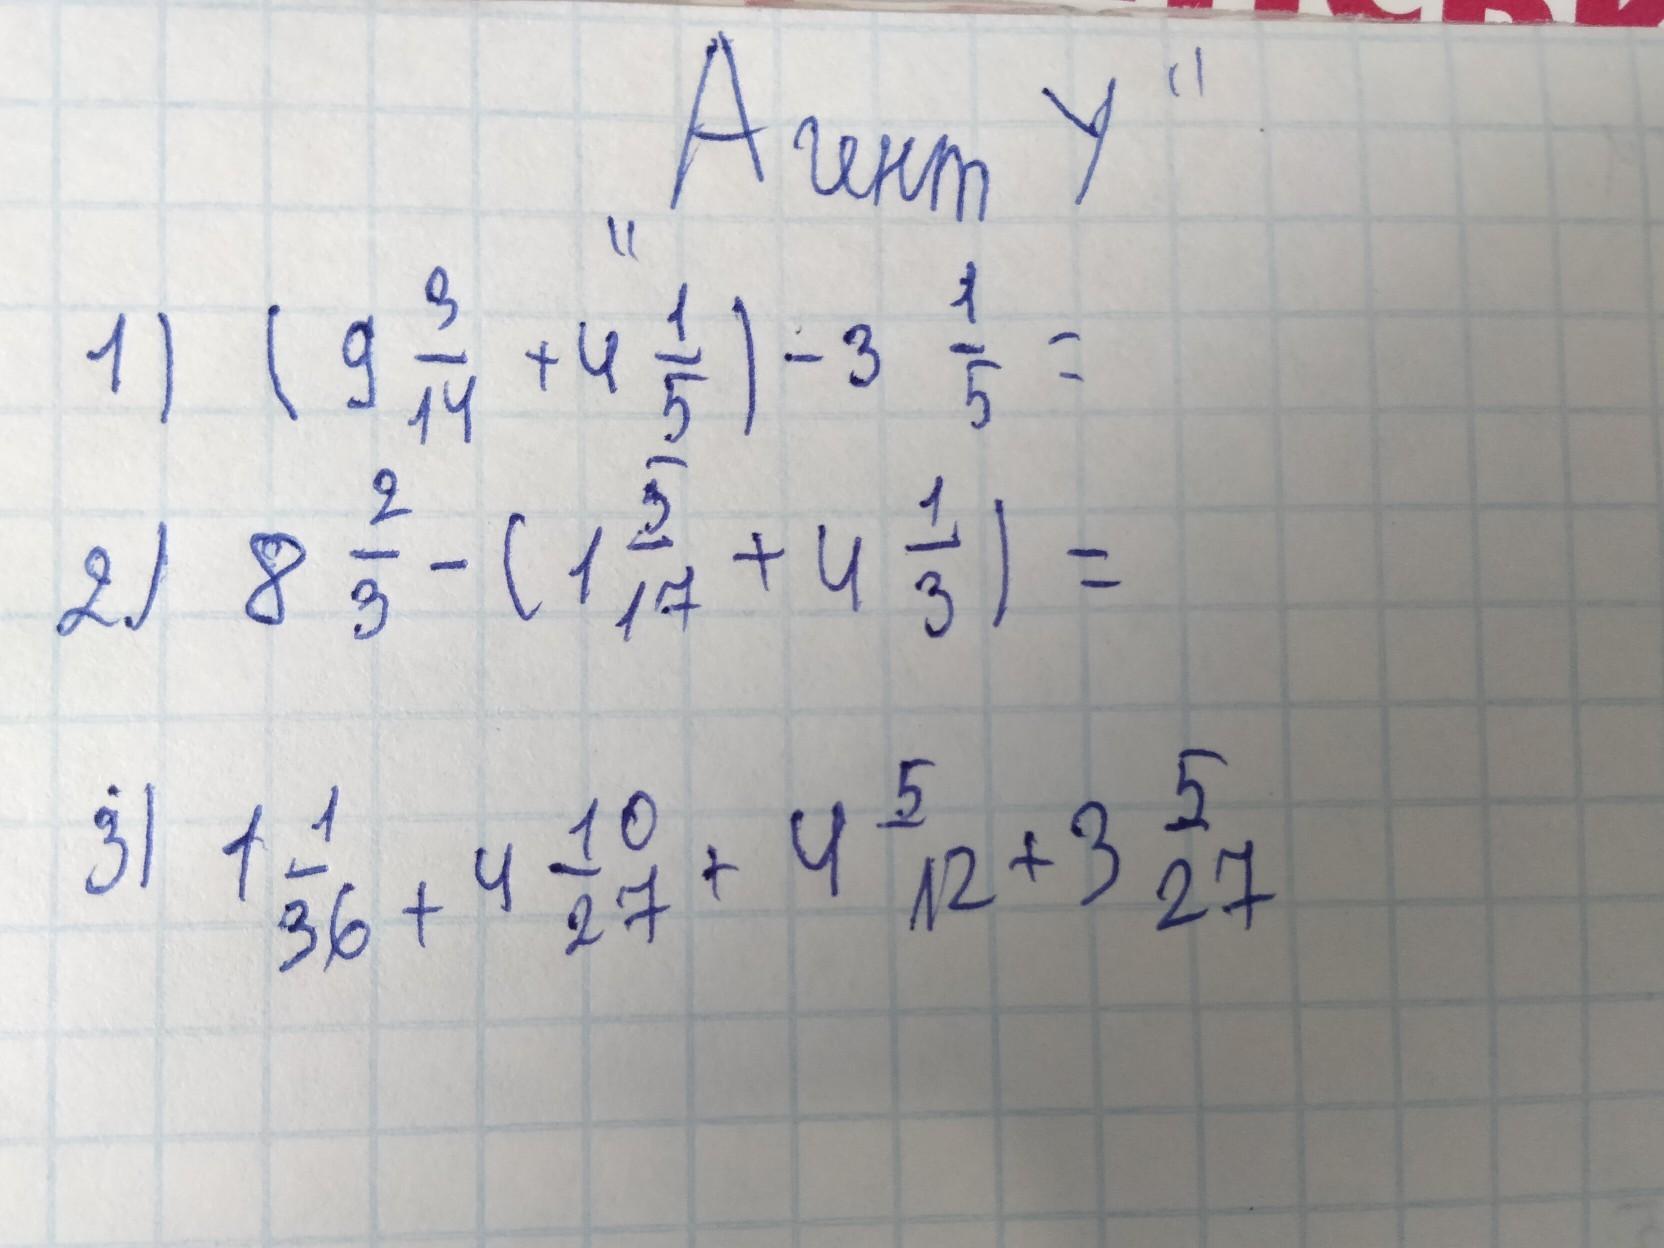 "Агент У"
1) (9 3/14 + 4 1/5) - 3 1/5 =
2) 8 2/3 - (1 5/17 + 4 1/3) =
3) 1 1/36 + 4 10/27 + 4 5/12 + 3 5/27